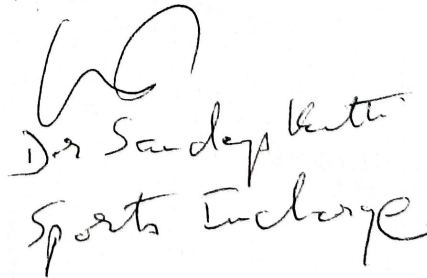 Dr Sandeep
Sports Incharge